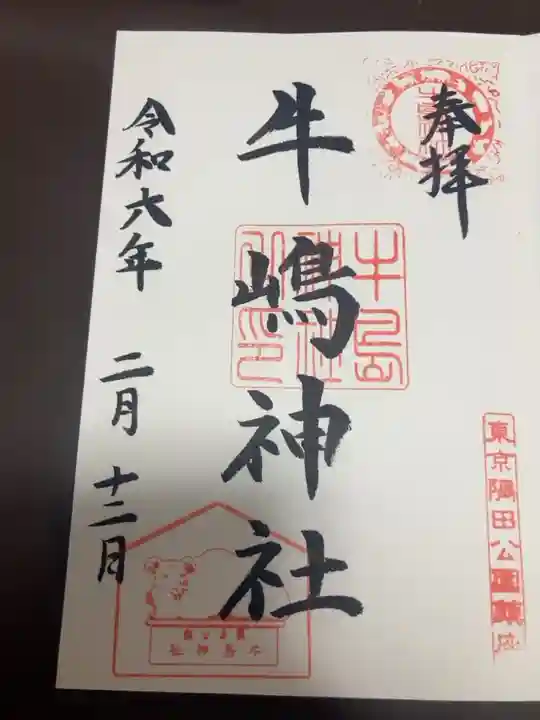 奉拝
東京隅田公園鎮座
牛嶋神社
牛島神社之印
令和六年 二月 十二日
牛嶋神社